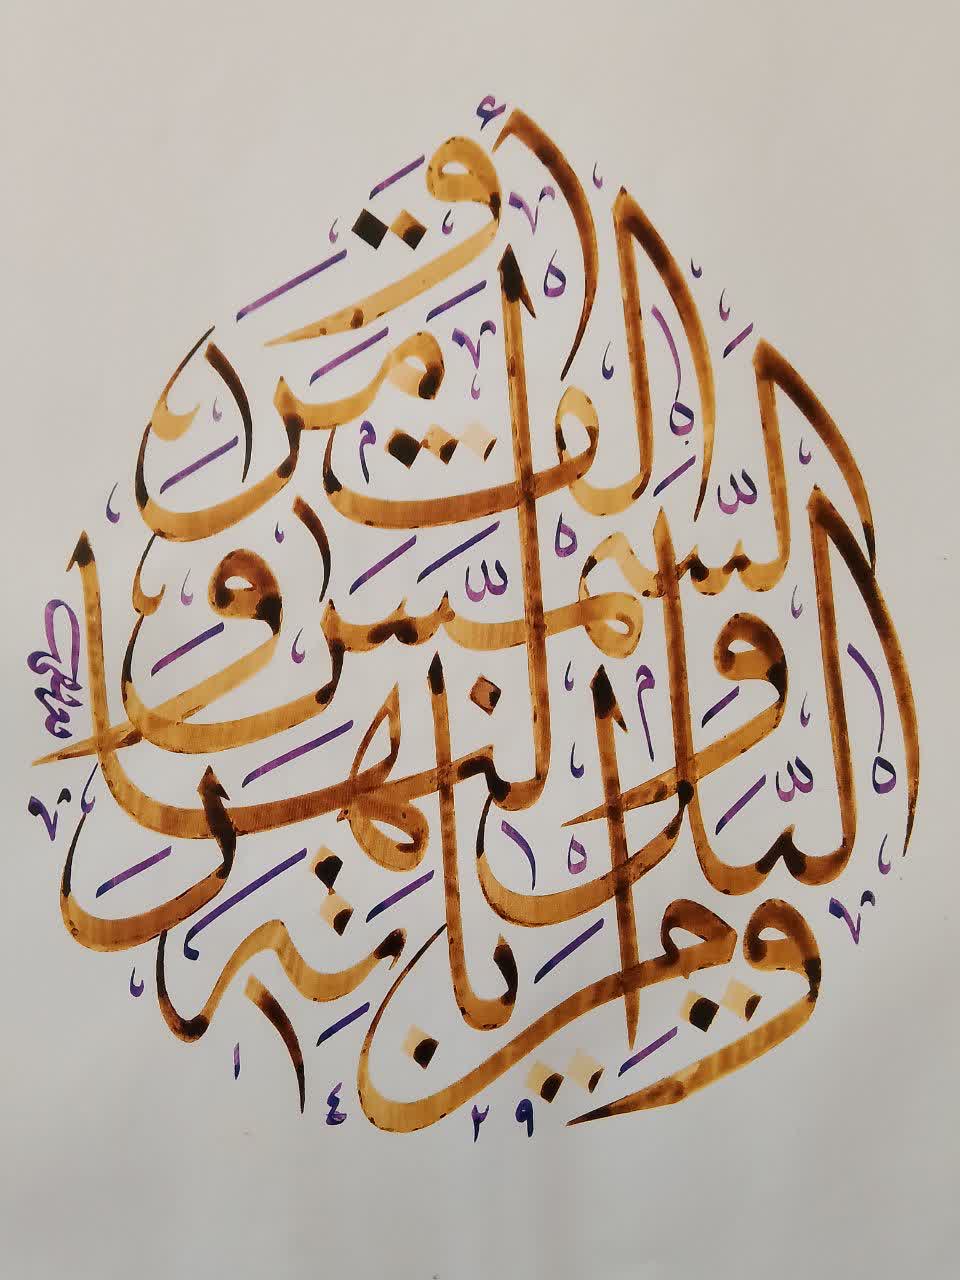 ومن آياته
اليل والنهار
والشمس
والقمر
١٤٢٩